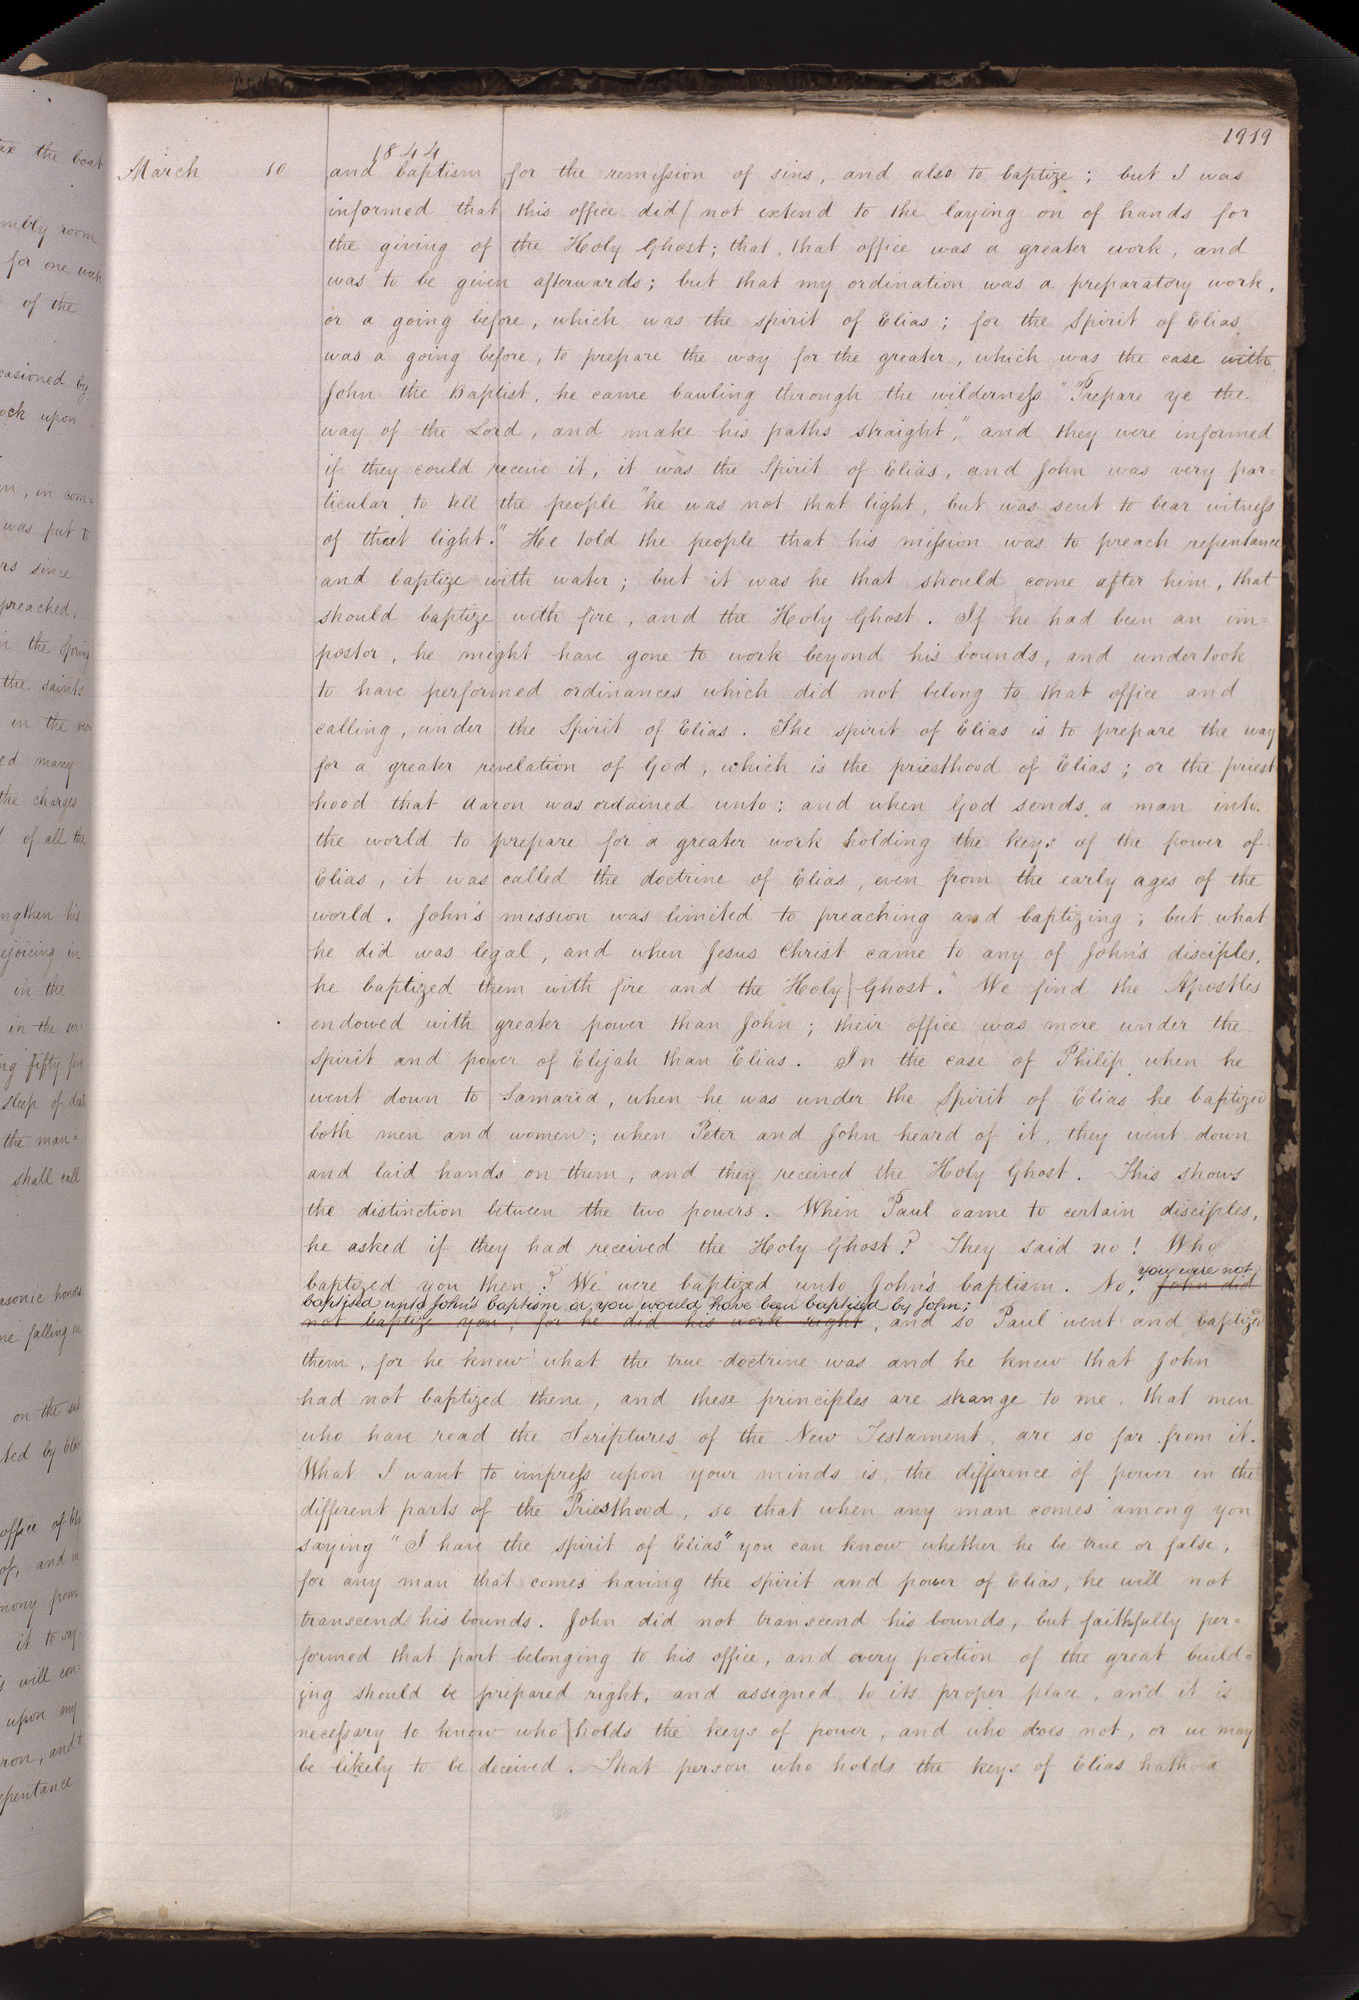 1919
1844
March 10 and baptism for the remission of sins, and also to baptize; but I was
informed that this office did not extend to the laying on of hands for
the giving of the Holy Ghost; that, that office was a greater work, and
was to be given afterwards; but that my ordination was a preparatory work,
or a going before, which was the spirit of Elias; for the Spirit of Elias
was a going before, to prepare the way for the greater, which was the case with
John the Baptist, he came bawling through the wilderness "Prepare ye the
way of the Lord, and make his paths straight," and they were informed
if they could receive it, it was the Spirit of Elias, and John was very par=
ticular to tell the people "he was not that light, but was sent to bear witness
of that light." He told the people that his mission was to preach repentance
and baptize with water; but it was he that should come after him, that
should baptize with fire, and the Holy Ghost. If he had been an im=
postor, he might have gone to work beyond his bounds, and undertook
to have performed ordinances which did not belong to that office and
calling, under the Spirit of Elias. The spirit of Elias is to prepare the way
for a greater revelation of God, which is the priesthood of Elias; or the priest
hood that Aaron was ordained unto: and when God sends a man into
the world to prepare for a greater work holding the keys of the power of
Elias, it was called the doctrine of Elias, even from the early ages of the
world. John's mission was limited to preaching and baptizing; but what
he did was legal, and when Jesus Christ came to any of John's disciples,
he baptized them with fire and the Holy Ghost. We find the Apostles
endowed with greater power than John; their office was more under the
spirit and power of Elijah than Elias. In the case of Philip when he
went down to Samaria, when he was under the Spirit of Elias he baptized
both men and women; when Peter and John heard of it, they went down
and laid hands on them, and they received the Holy Ghost. This shows
the distinction between the two powers. When Paul came to certain disciples,
he asked if they had received the Holy Ghost? They said no! Who
you were not
baptized you then? We were baptized unto John's baptism. No, John did
baptised unto John's baptism or you would have been baptised by John;
not baptize you, for he did his work right, and so Paul went and baptized
them, for he knew what the true doctrine was and he knew that John
had not baptized them, and these principles are strange to me, that men
who have read the Scriptures of the New Testament, are so far from it.
What I want to impress upon your minds is, the difference of power in the
different parts of the Priesthood, so that when any man comes among you
saying "I have the spirit of Elias" you can know whether he be true or false,
for any man that comes having the spirit and power of Elias, he will not
transcend his bounds. John did not transcend his bounds, but faithfully per=
formed that part belonging to his office, and every portion of the great build=
ing should be prepared right, and assigned to its proper place, and it is
necessary to know who holds the keys of power, and who does not, or we may
be likely to be deceived. That person who holds the keys of Elias hath a